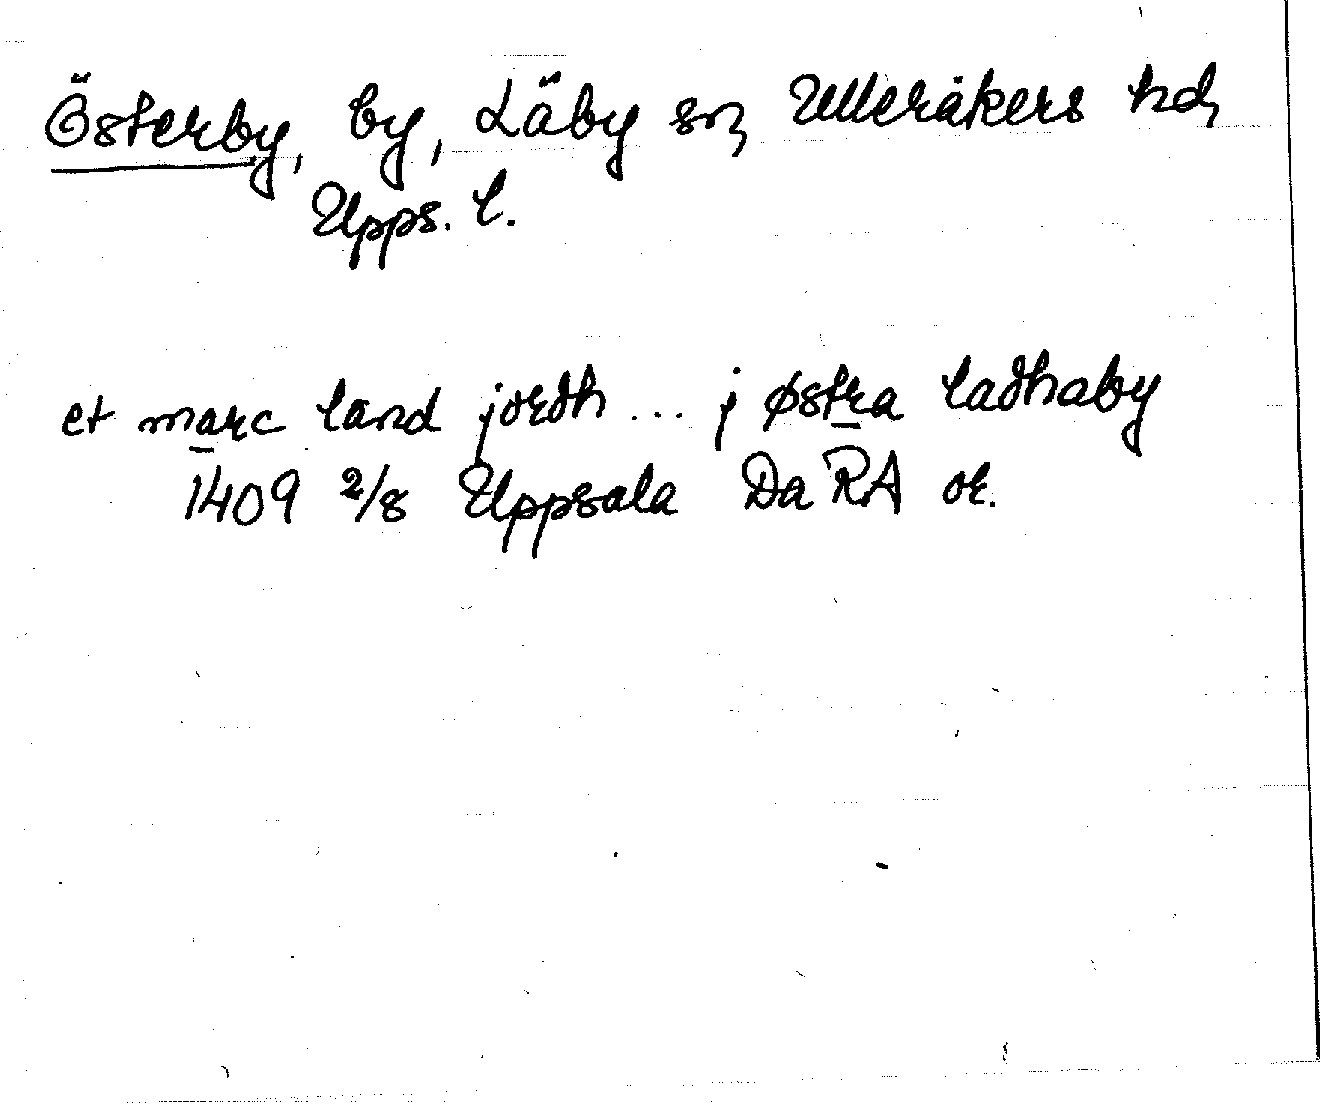 Österby, by, Läby sn, Ulleråkers hd,
Upps. l.
et marc land jordh ... j østra ladhaby
1409 2/8 Uppsala Da RA or.